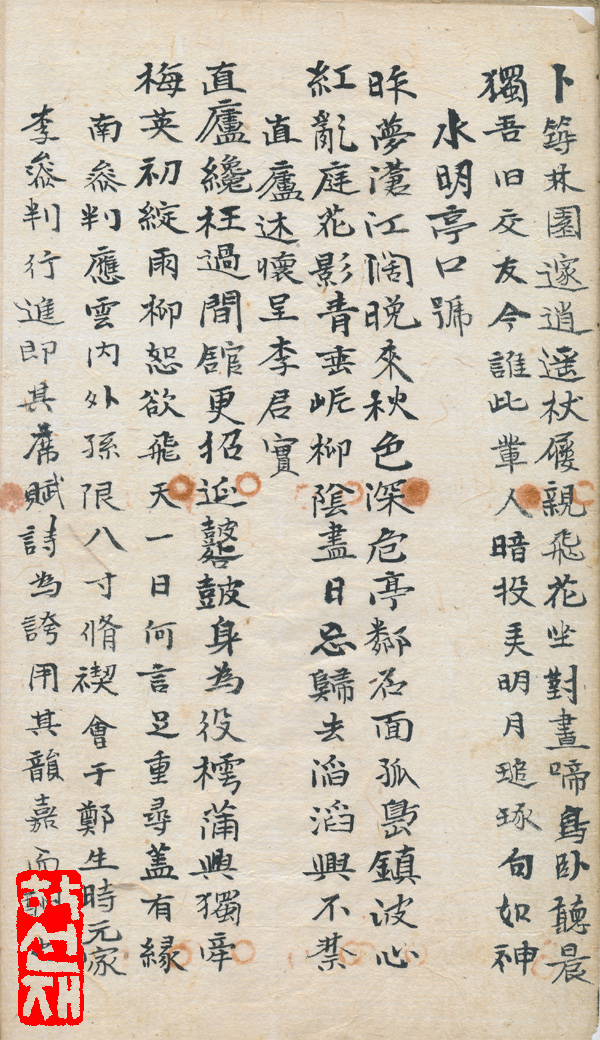 卜築林園邃逍遥杖屨親飛花坐對晝啼鳥臥聽晨
獨吾旧交友今誰此輩人暗投美明月瑶琢句如神
水明亭口號
昨夢滄江闊晩來秋色深危亭鄰石面孤島鎮波心
紅亂庭花影青垂岸柳陰盡日忘歸去滔滔興不禁
直廬述懷呈李君實
直廬纔枉過間舘更招延鼓身為役樗蒲興獨牽
梅英初綻雨柳恕欲飛天一日何言足重尋盖有緣
南叅判應雲内外孫限八寸脩禊會于鄭生時元家
李叅判行進即其席賦詩為誇用其韻嘉而
한선재